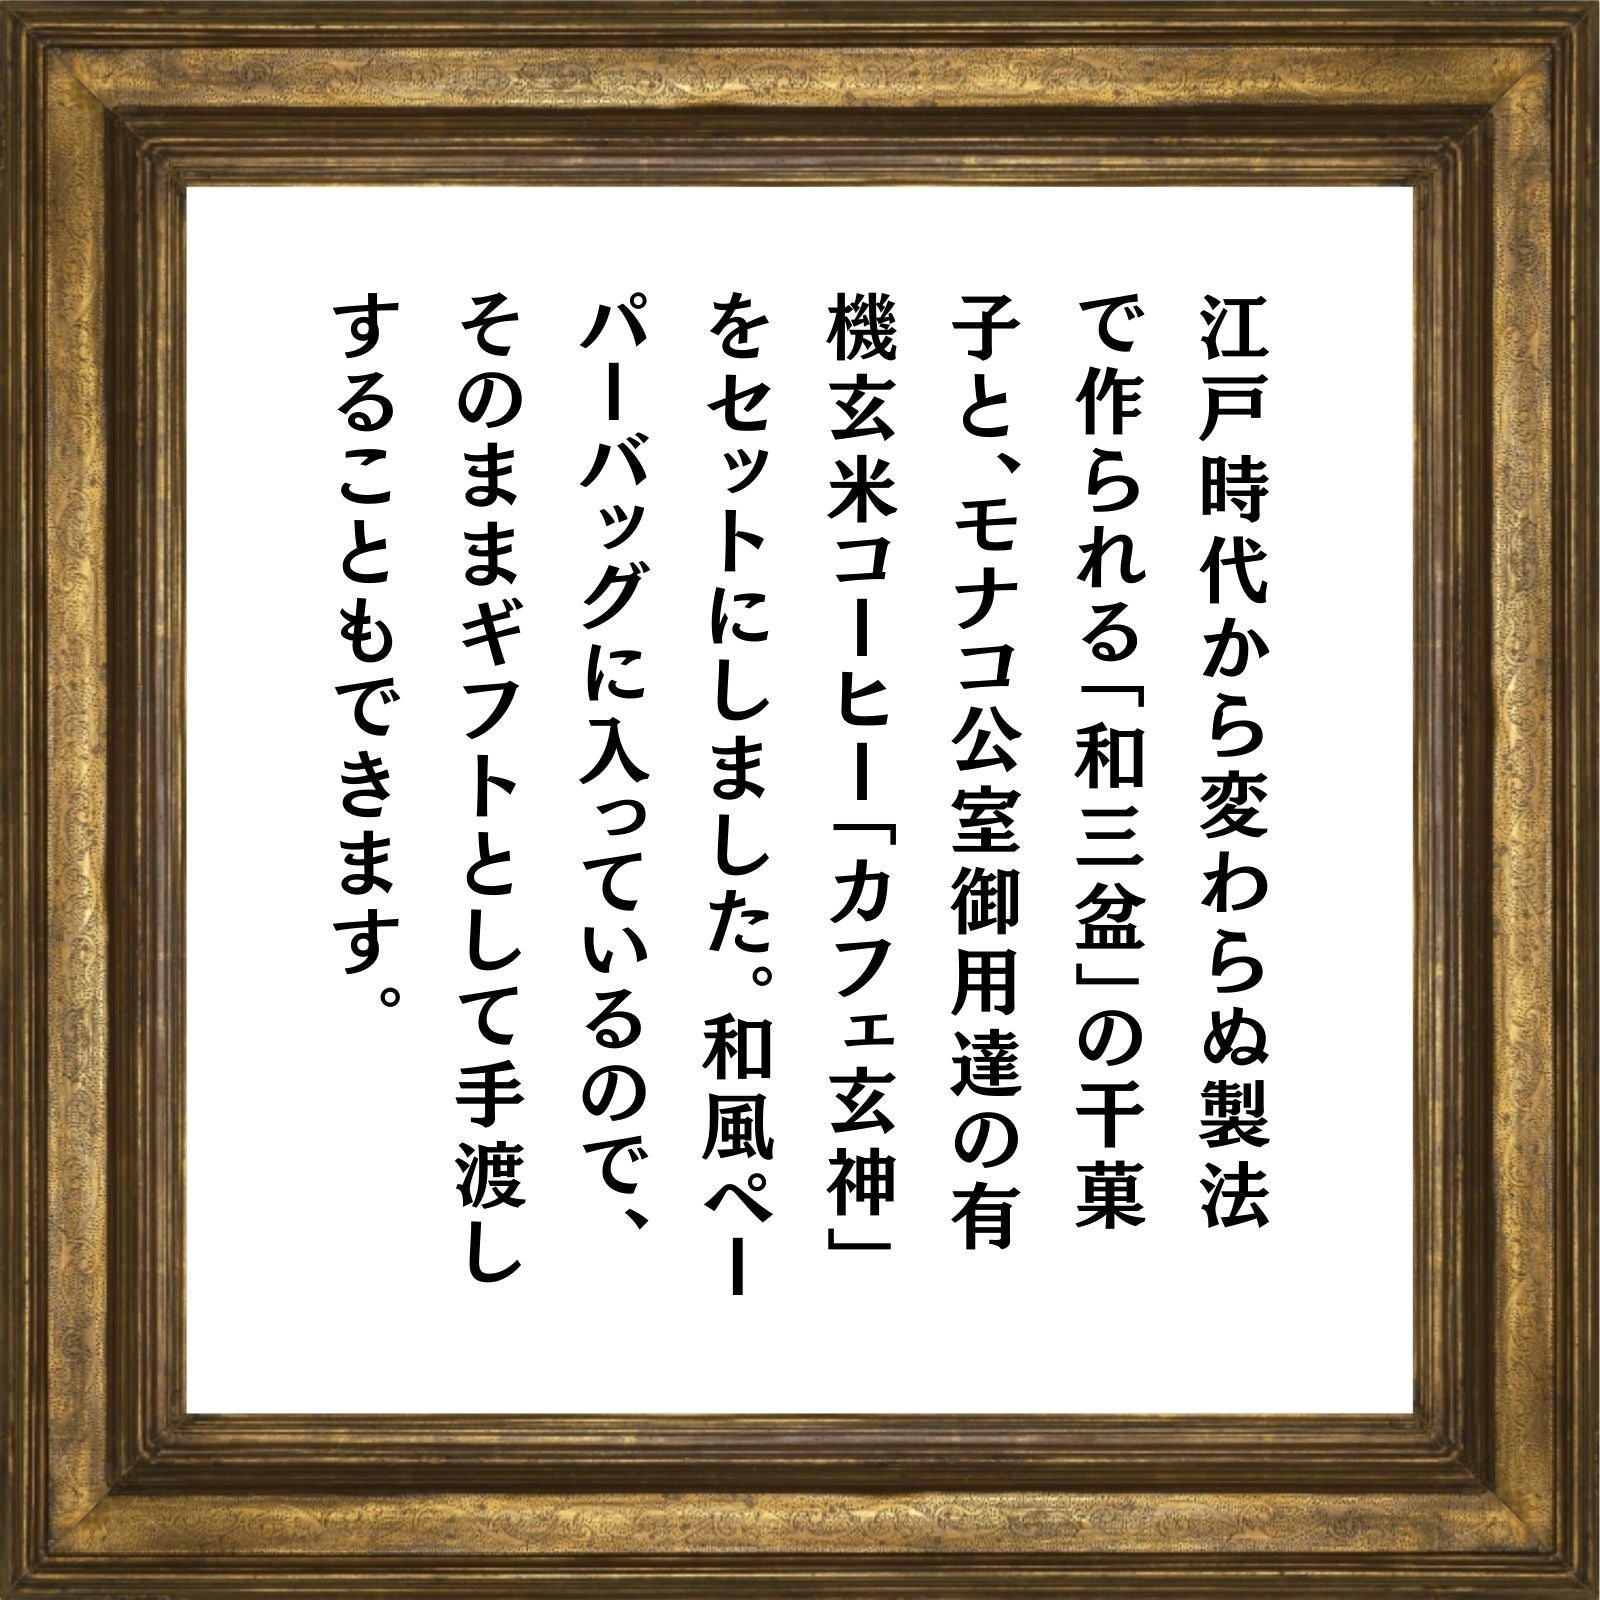 江戸時代から変わらぬ製法
で作られる「和三盆」の干菓
子と、モナコ公室御用達の有
機玄米コーヒー「カフェ玄神」
をセットにしました。和風ペー
パーバッグに入っているので、
そのままギフトとして手渡し
することもできます。